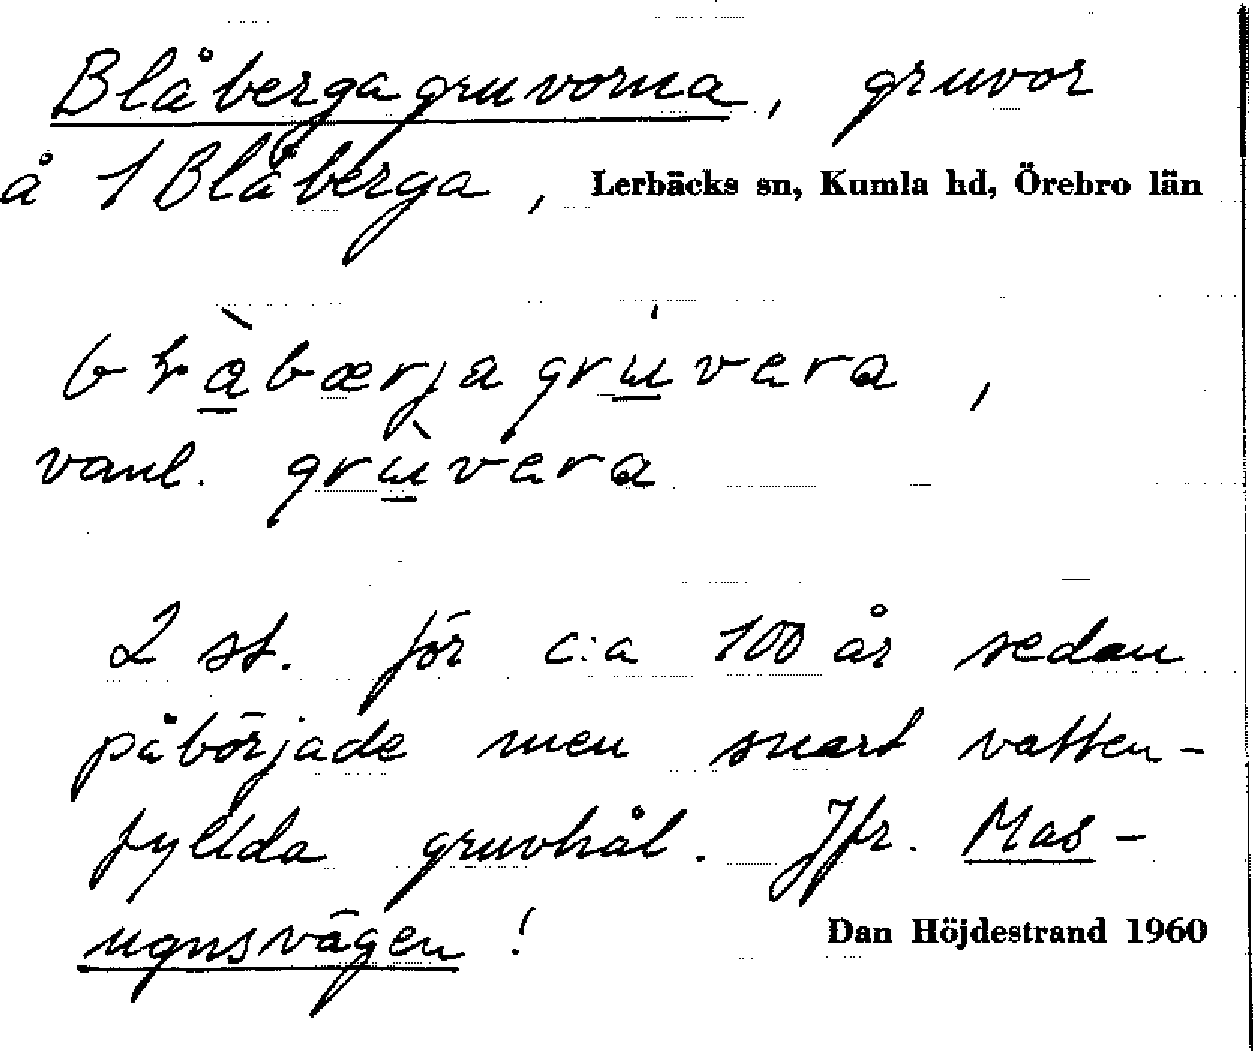 Blåbergagruvorna, gruvor
å 1 Blåberga, Lerbäcks sn, Kumla hd, Örebro län
vanl. grùvera
2 st. för c:a 100 år sedan
påbörjade men snart vatten-
fyllda gruvhål. Jfr. Mas-
ugnsvägen!
Dan Höjdestrand 1960